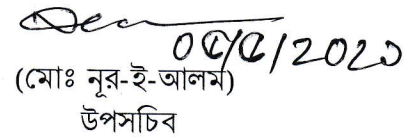 ০৫/৫/2020
(মোঃ নূর-ই-আলম)
উপসচিব